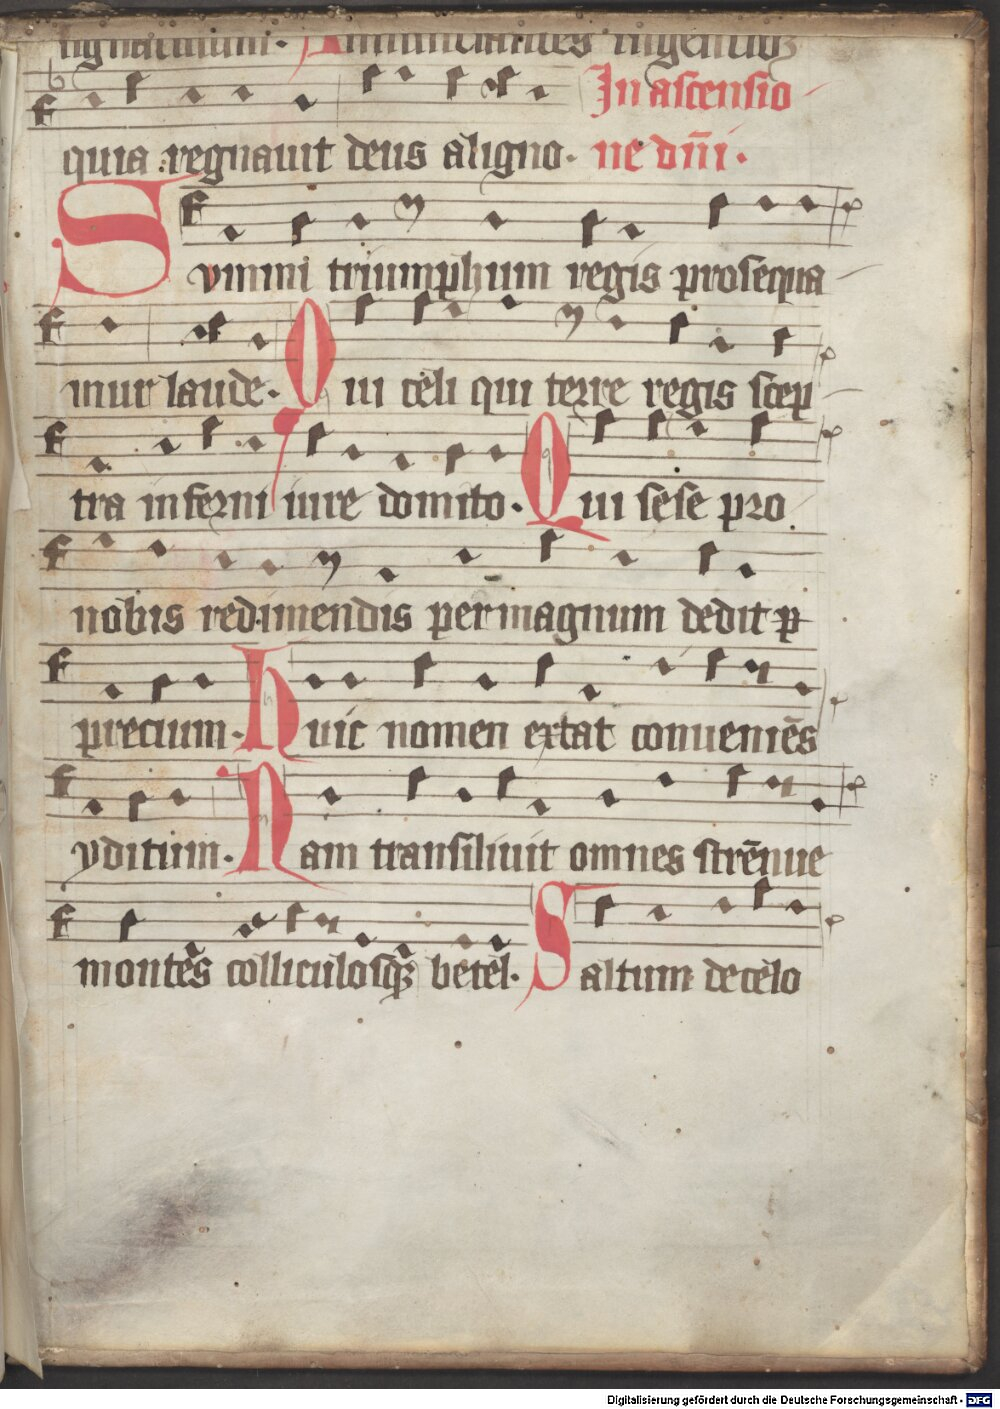 In ascensio
quia regnauit deus aligno. ne dn̄i.
Svmmi triumphum regis prosequa
mur laude. Qui celi qui terre regis scep
tra inferni iure domito. Qui sese pro
nobis redimendis permagnum dedit p
precium. Huic nomen extat conueniēs
yditum. Nam transiliuit omnes strēnue
montes colliculosqꝫ betel. Saltum decelo
Digitalisierung gefördert durch die Deutsche Forschungsgemeinschaft - DFG